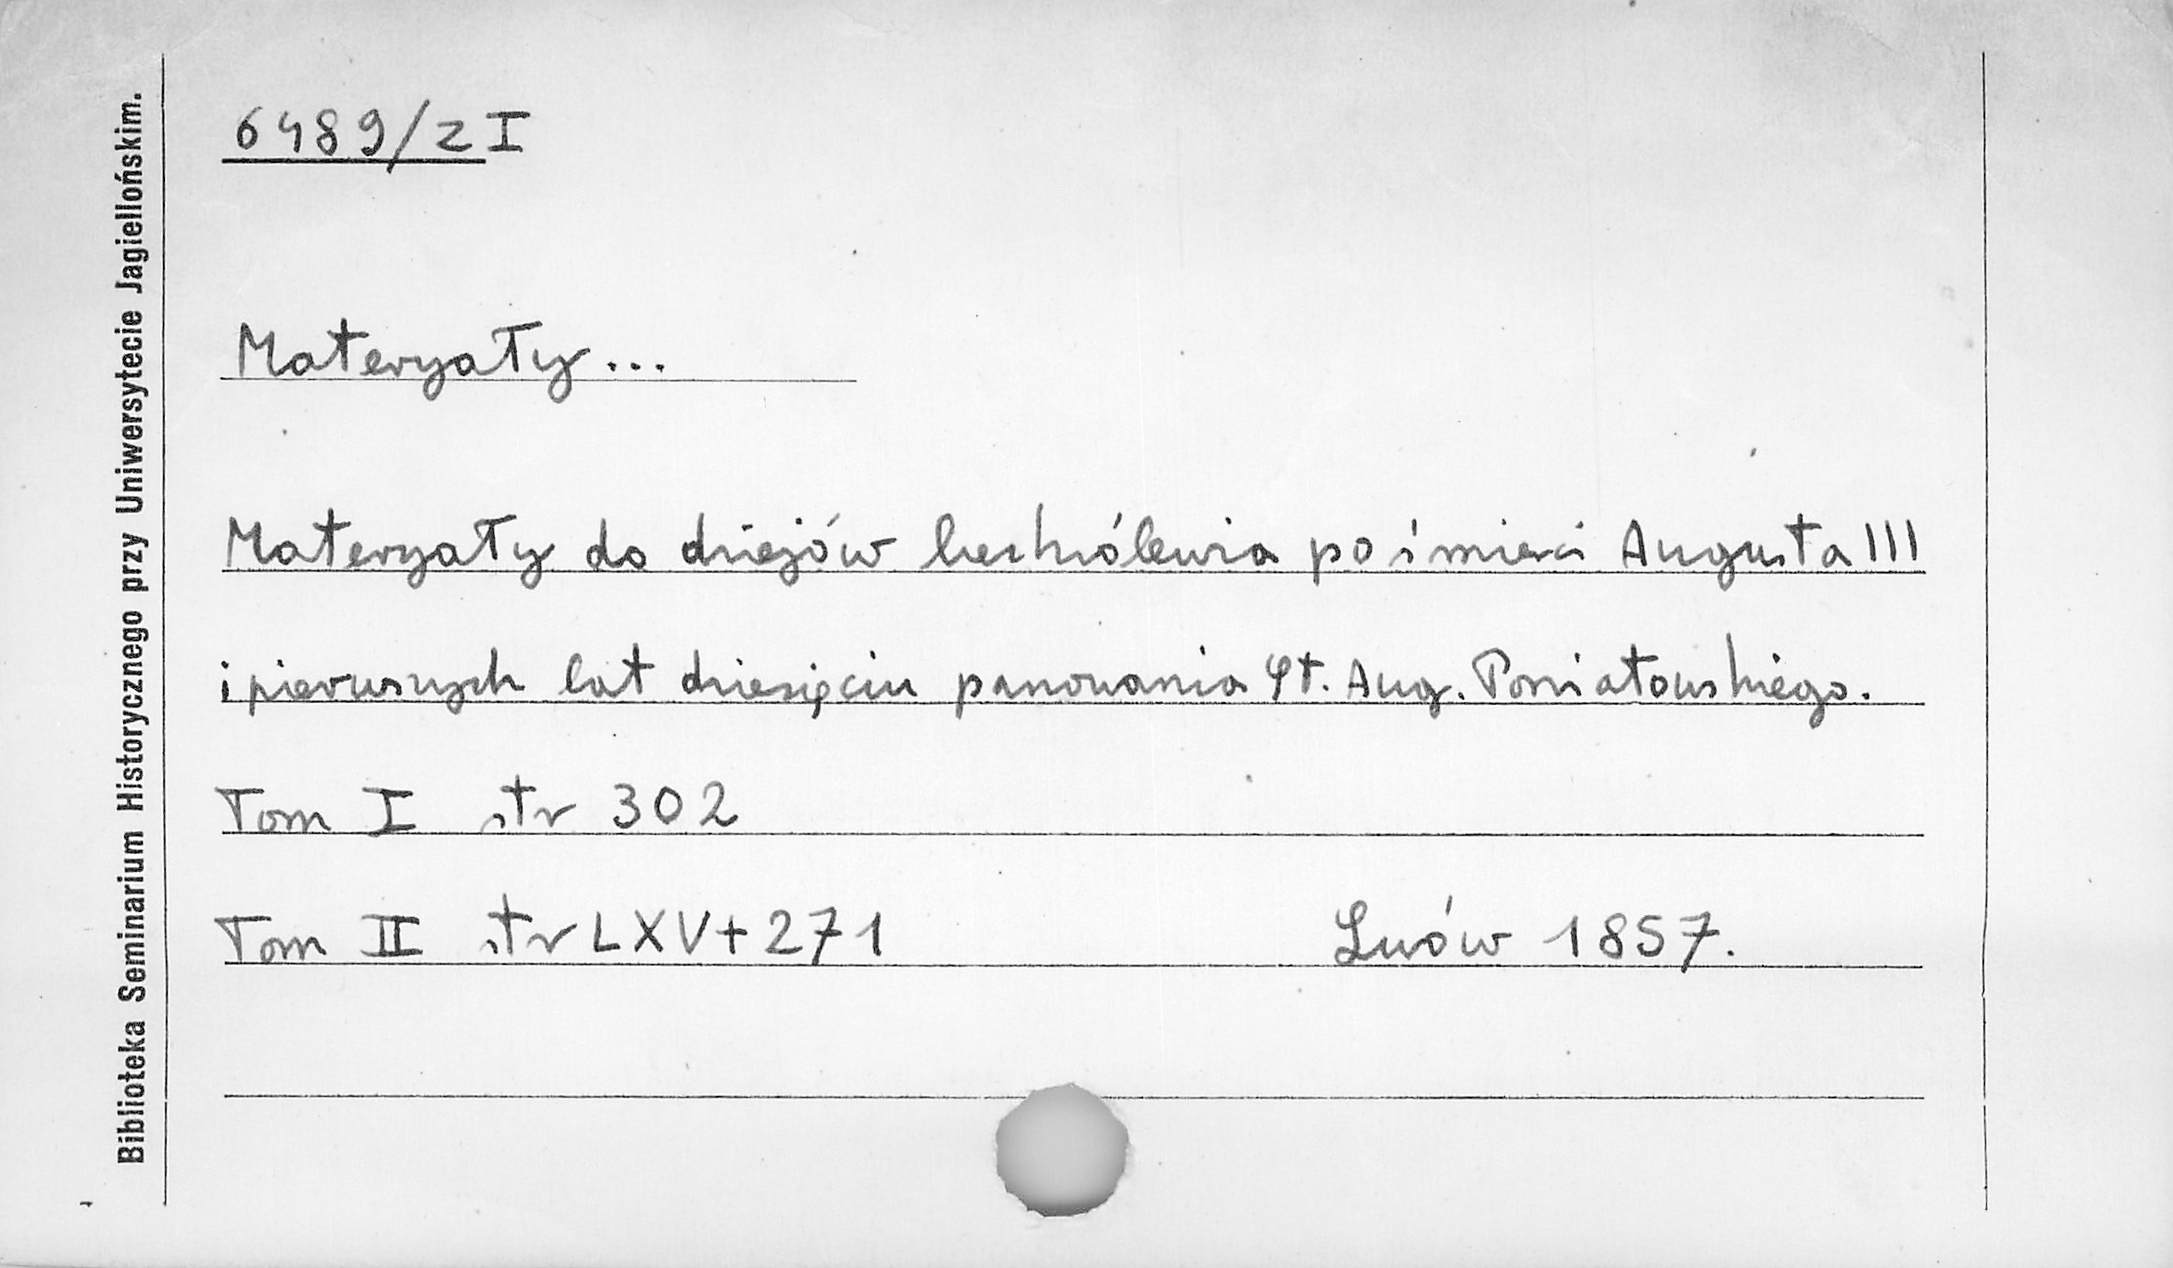 Biblioteka Seminarium Historycznego przy Uniwersytecie Jagiellońskim.
6489/z I
Materyały...
Materyały do dziejów bezkrólewia po śmierci Augusta III
i pierwszych lat dziesięciu panowania St. Aug. Poniatowskiego.
Tom I str 302
Tom II str LXV+271 Lwów 1857.